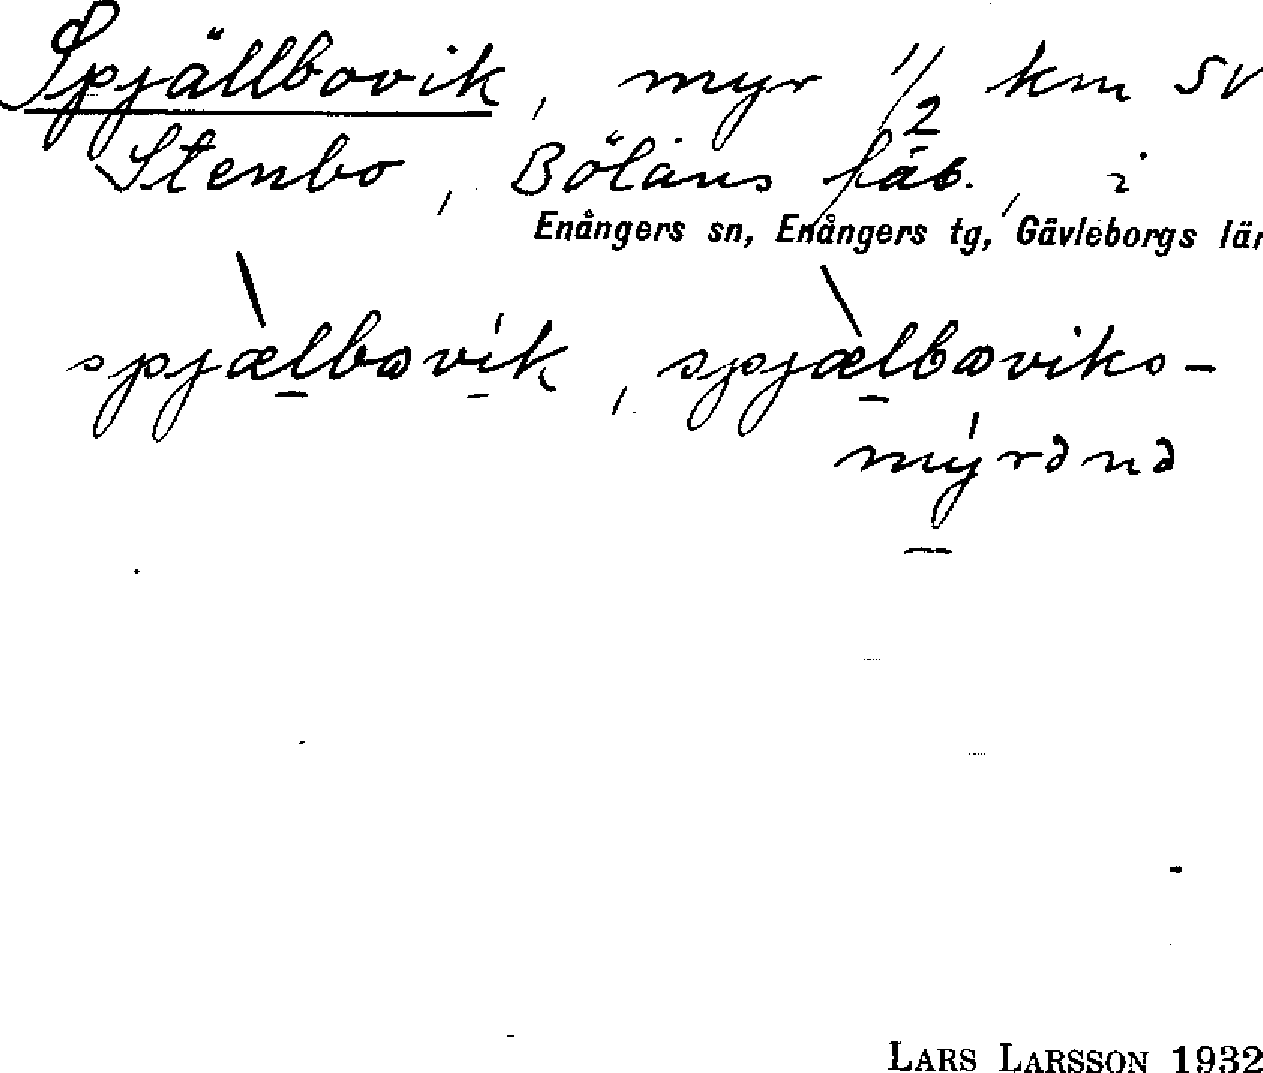 Spjällbovik, myr 1/2 km SV
Stenbo, Bölans fäb., i
Enångers sn, Enångers tg, Gävleborgs län
spjælbovik, spjælboviks-
myrənə
LARS LARSSON 1932